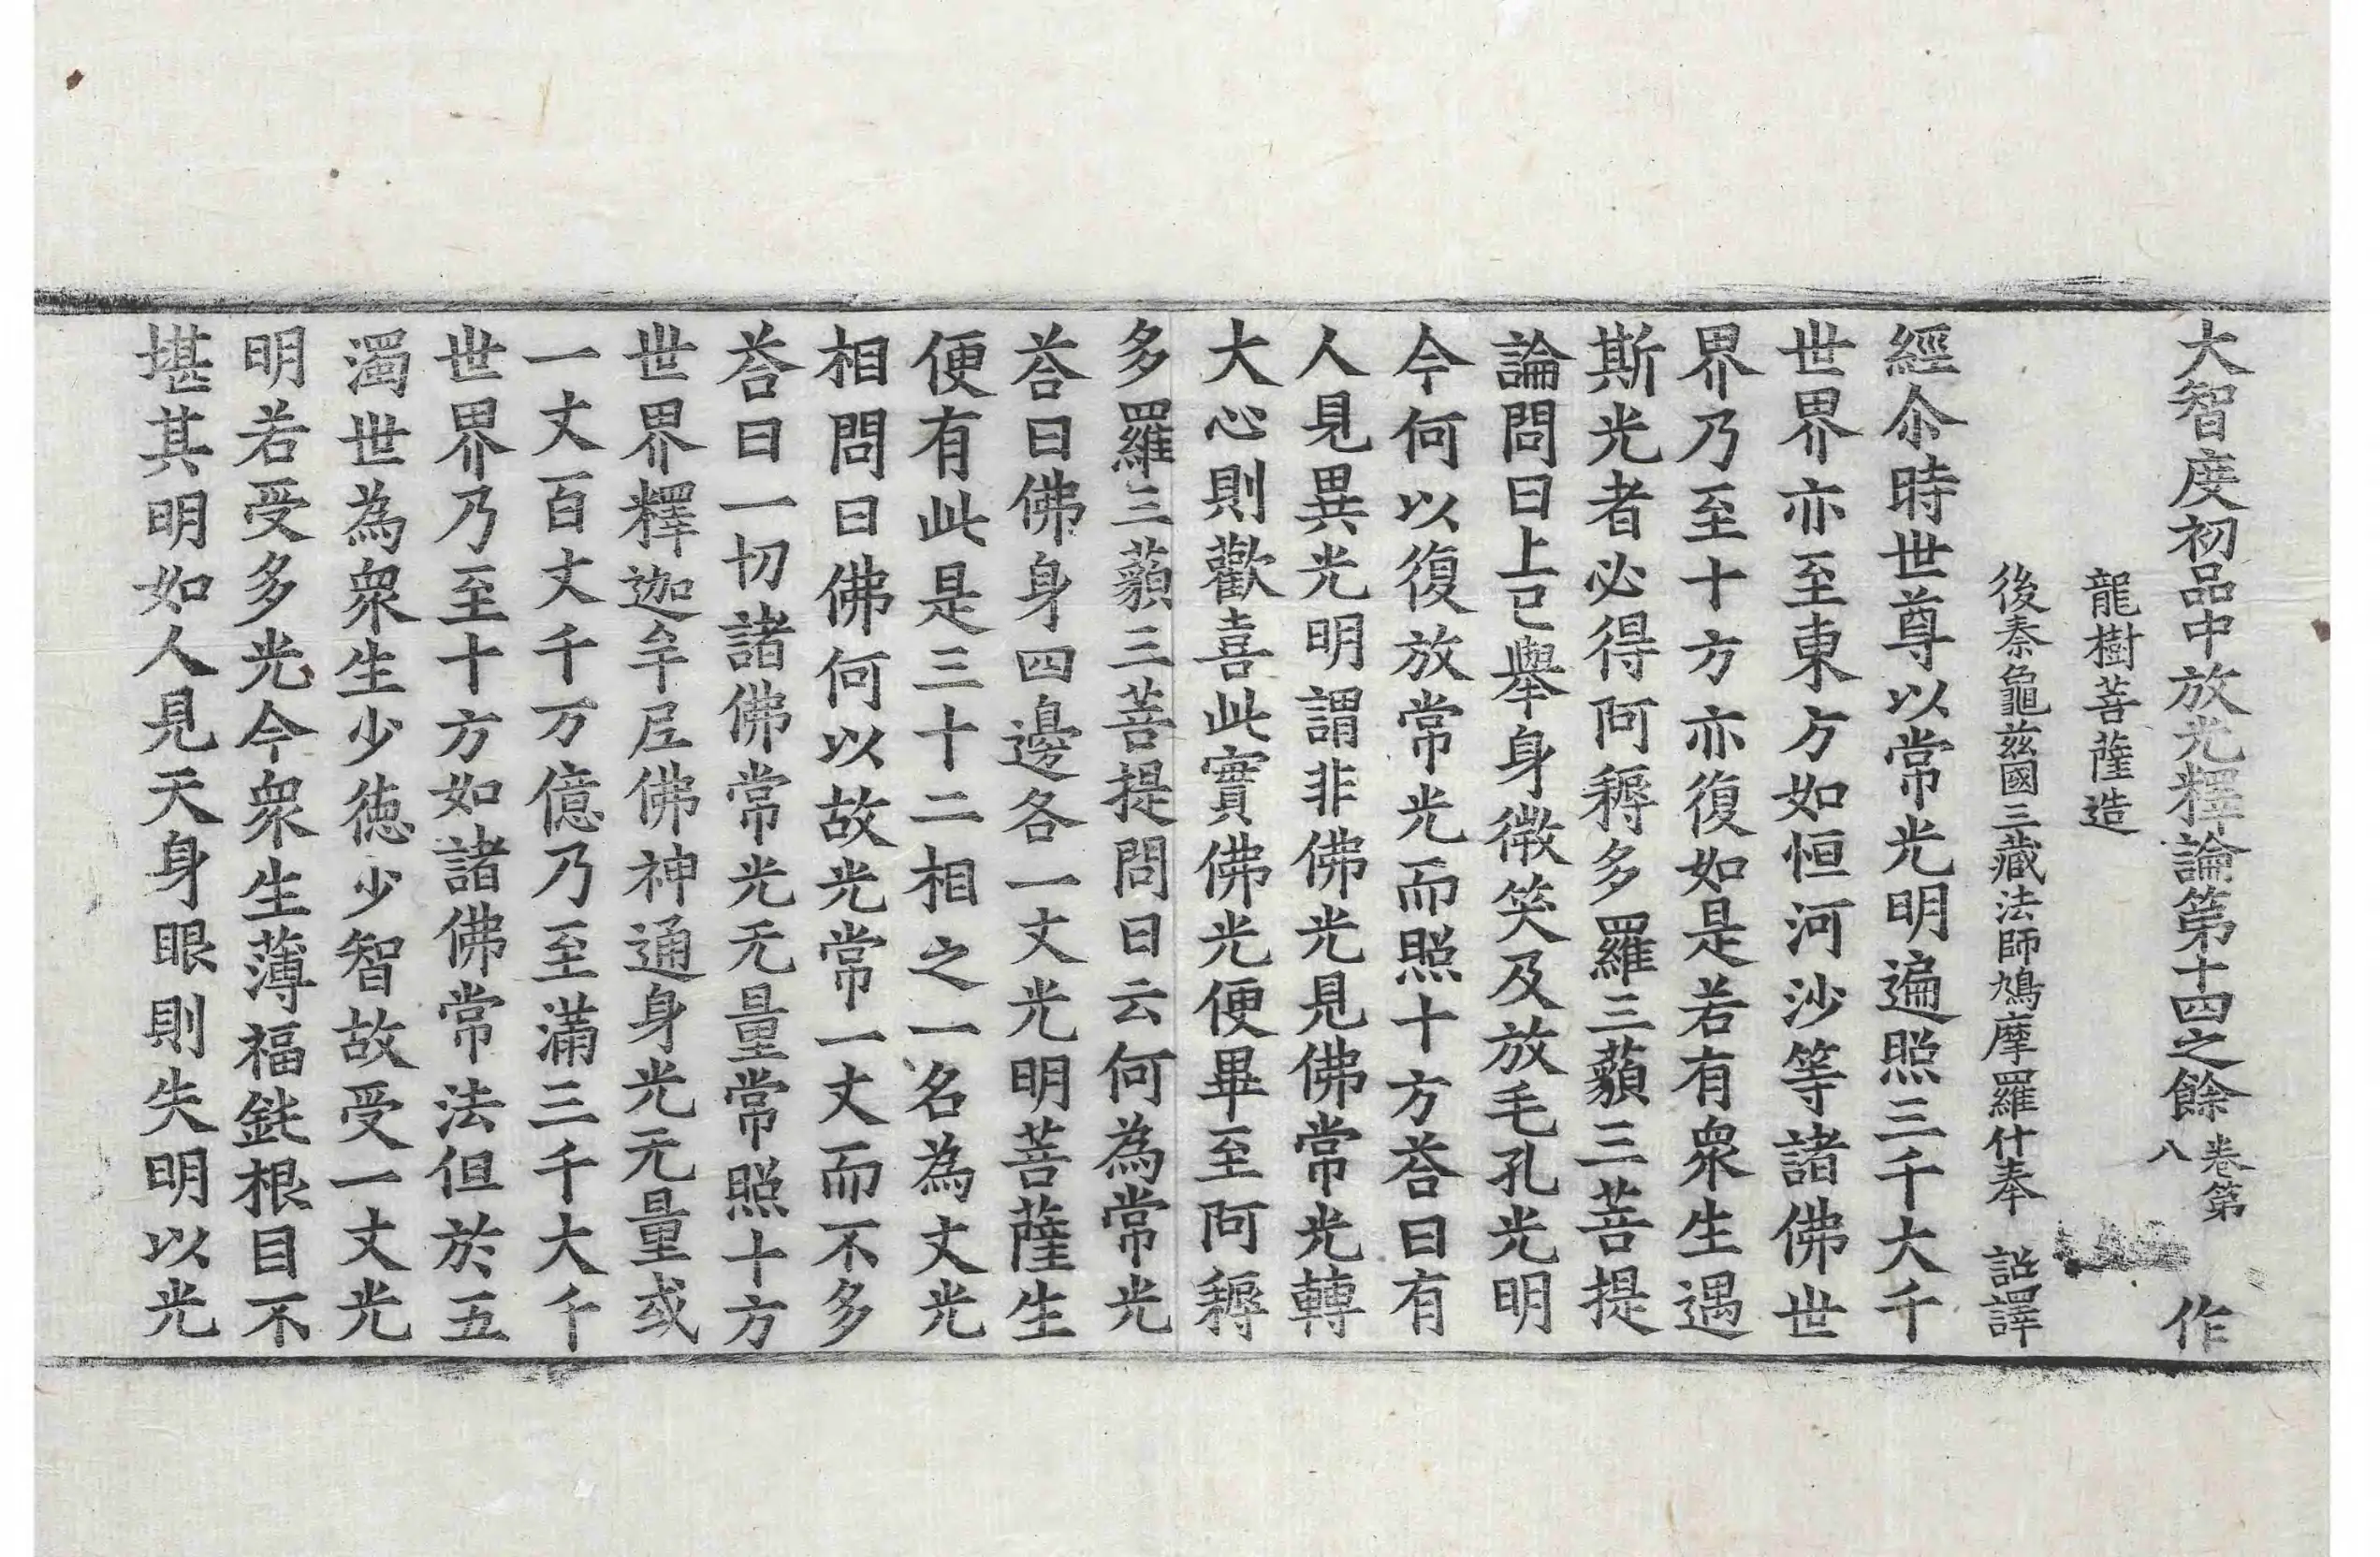 大智度初品中放光釋論第十四之餘 卷第八 作
龍樹菩薩造
後秦龜茲國三藏法師鳩摩羅什奉 詔譯
經尒時世尊以常光明遍照三千大千
世界亦至東方如恒河沙等諸佛世
界乃至十方亦復如是若有衆生遇
斯光者必得阿耨多羅三藐三菩提
論問曰上已舉身微笑及放毛孔光明
今何以復放常光而照十方荅曰有
人見異光明謂非佛光見佛常光轉
大心則歡喜此實佛光便畢至阿耨
多羅三藐三菩提問曰云何為常光
荅曰佛身四邊各一丈光明菩薩生
便有此是三十二相之一名為丈光
相問曰佛何以故光常一丈而不多
荅曰一切諸佛常光无量常照十方
世界釋迦牟尼佛神通身光无量或
一丈百丈千万億乃至滿三千大千
世界乃至十方如諸佛常法但於五
濁世為衆生少德少智故受一丈光
明若受多光今衆生薄福鈍根目不
堪其明如人見天身眼則失明以光